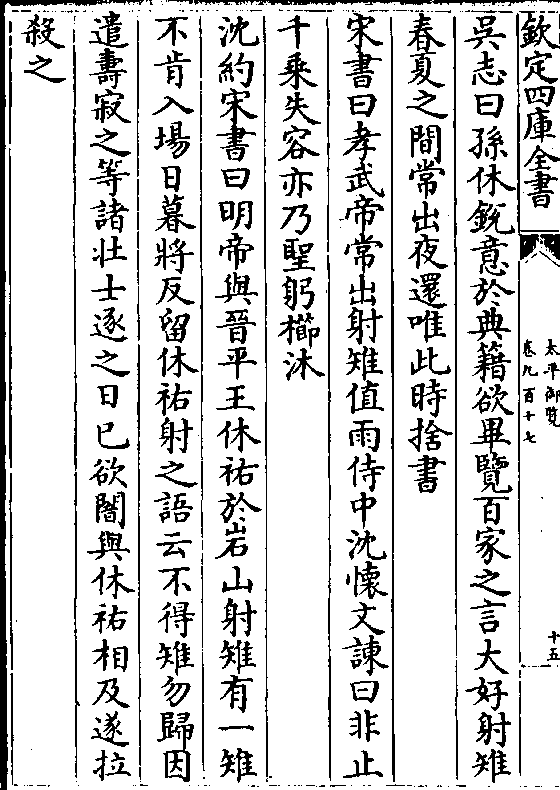 欽定四庫全書
太平御覽
卷九百十七
十五
吳志曰孫休銳意於典籍欲畢覽百家之言大好射雉
春夏之間常出夜還唯此時捨書
宋書曰孝武帝常出射雉值雨侍中沈懷文諫曰非止
千乘失容亦乃聖躬櫛沐
沈約宋書曰明帝與晉平王休祐於岩山射雉有一雉
不肯入場日暮將反留休祐射之語云不得雉勿歸因
遣壽寂之等諸壯士逐之日已欲闇與休祐相及遂拉
殺之